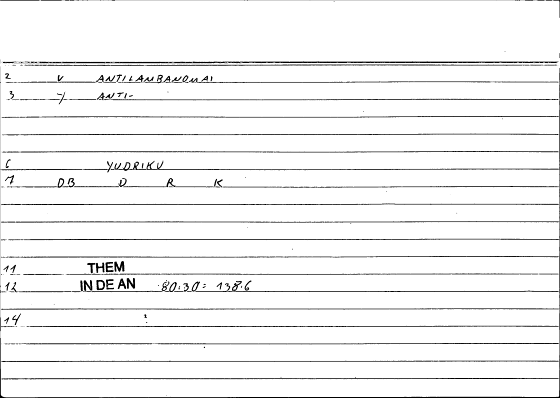 2 V ANTILAMBANOMAI
3 -/ ANTI-
6 YUDRIKU
7 DB D R K
11 THEM
12 IN DE AN 80:30= 138.6
14 :